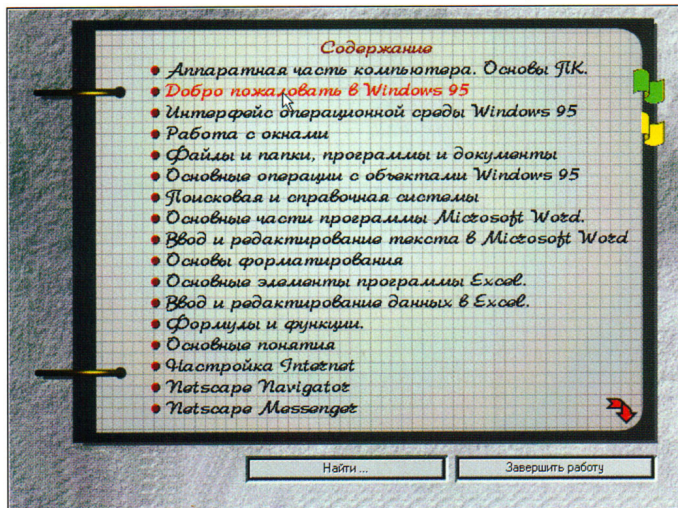 Содержание
Аппаратная часть компьютера. Основы ПК.
Добро пожаловать в Windows 95
Интерфейс операционной среды Windows 95
Работа с окнами
Файлы и папки, программы и документы
Основные операции с объектами Windows 95
Поисковая и справочная системы
Основные части программы Microsoft Word.
Ввод и редактирование текста в Microsoft Word
Основы форматирования
Основные элементы программы Excel.
Ввод и редактирование данных в Excel.
Формулы и функции.
Основные понятия
Настройка Internet
Netscape Navigator
Netscape Messenger
Найти ... Завершить работу